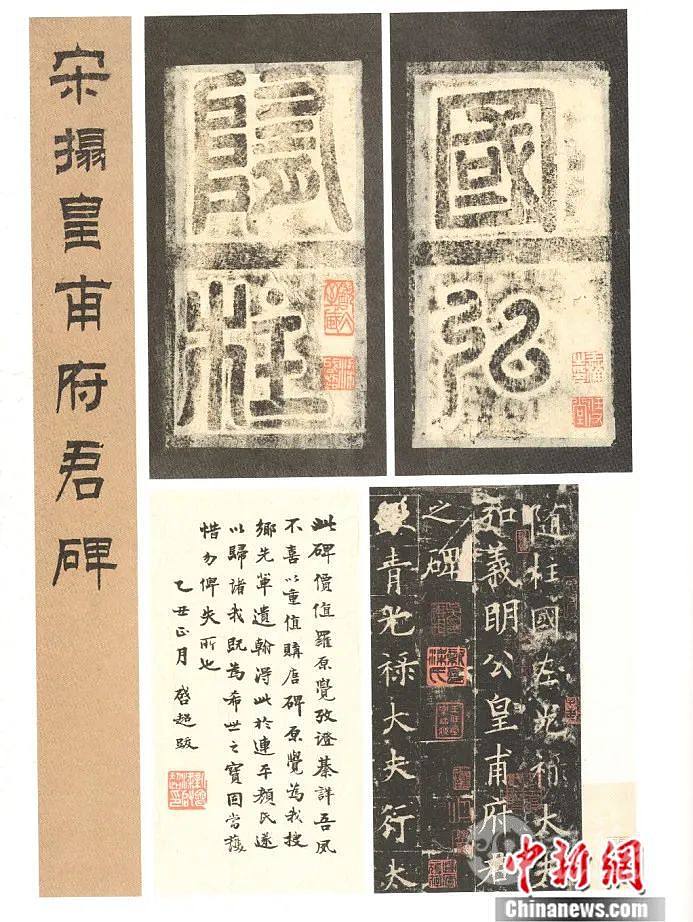 宋搨皇甫府君碑
國弘
隨柱
此碑價值羅原覺攷證綦詳吾夙
不喜以重值購唐碑原覺為我搜
鄉先輩遺翰得此於連平顏氏遂
以歸諸我既為希世之寶固當護
惜勿俾失所也
乙丑正月 啓超跋
隨柱國左光祿大夫
弘義明公皇甫府君
之碑
銀青光祿大夫行太
中新網
Chinanews.com